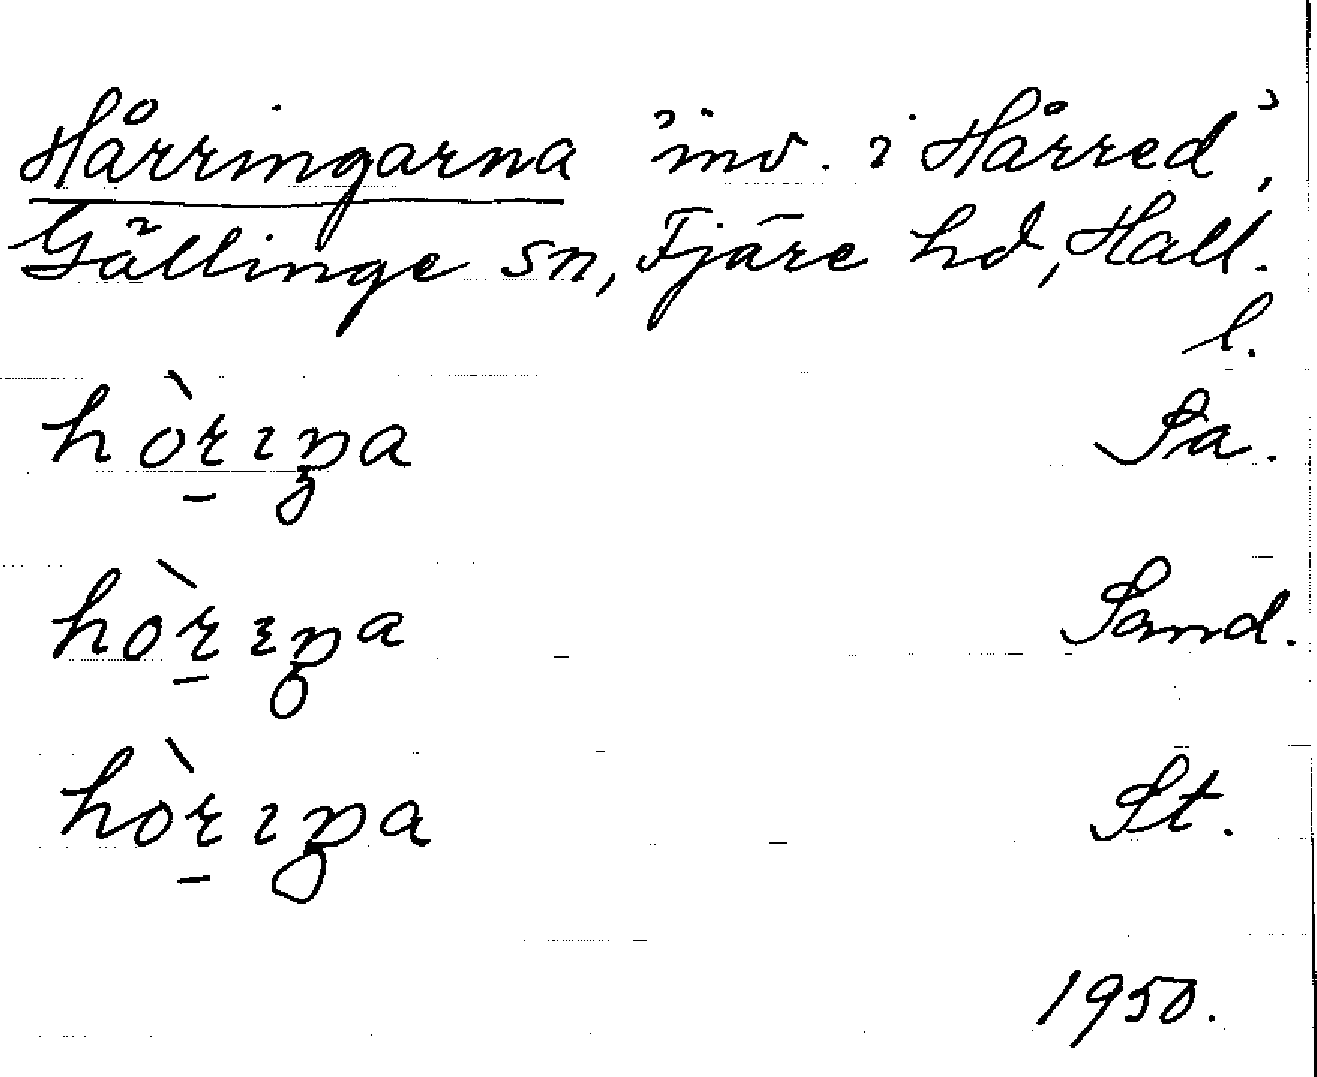 Hårringarna 'inv. i Hårred',
Gällinge sn, Fjäre hd, Hall.
l.
hòrıŋa Sa.
hòrıŋa Sand.
hòrıŋa St.
1950.